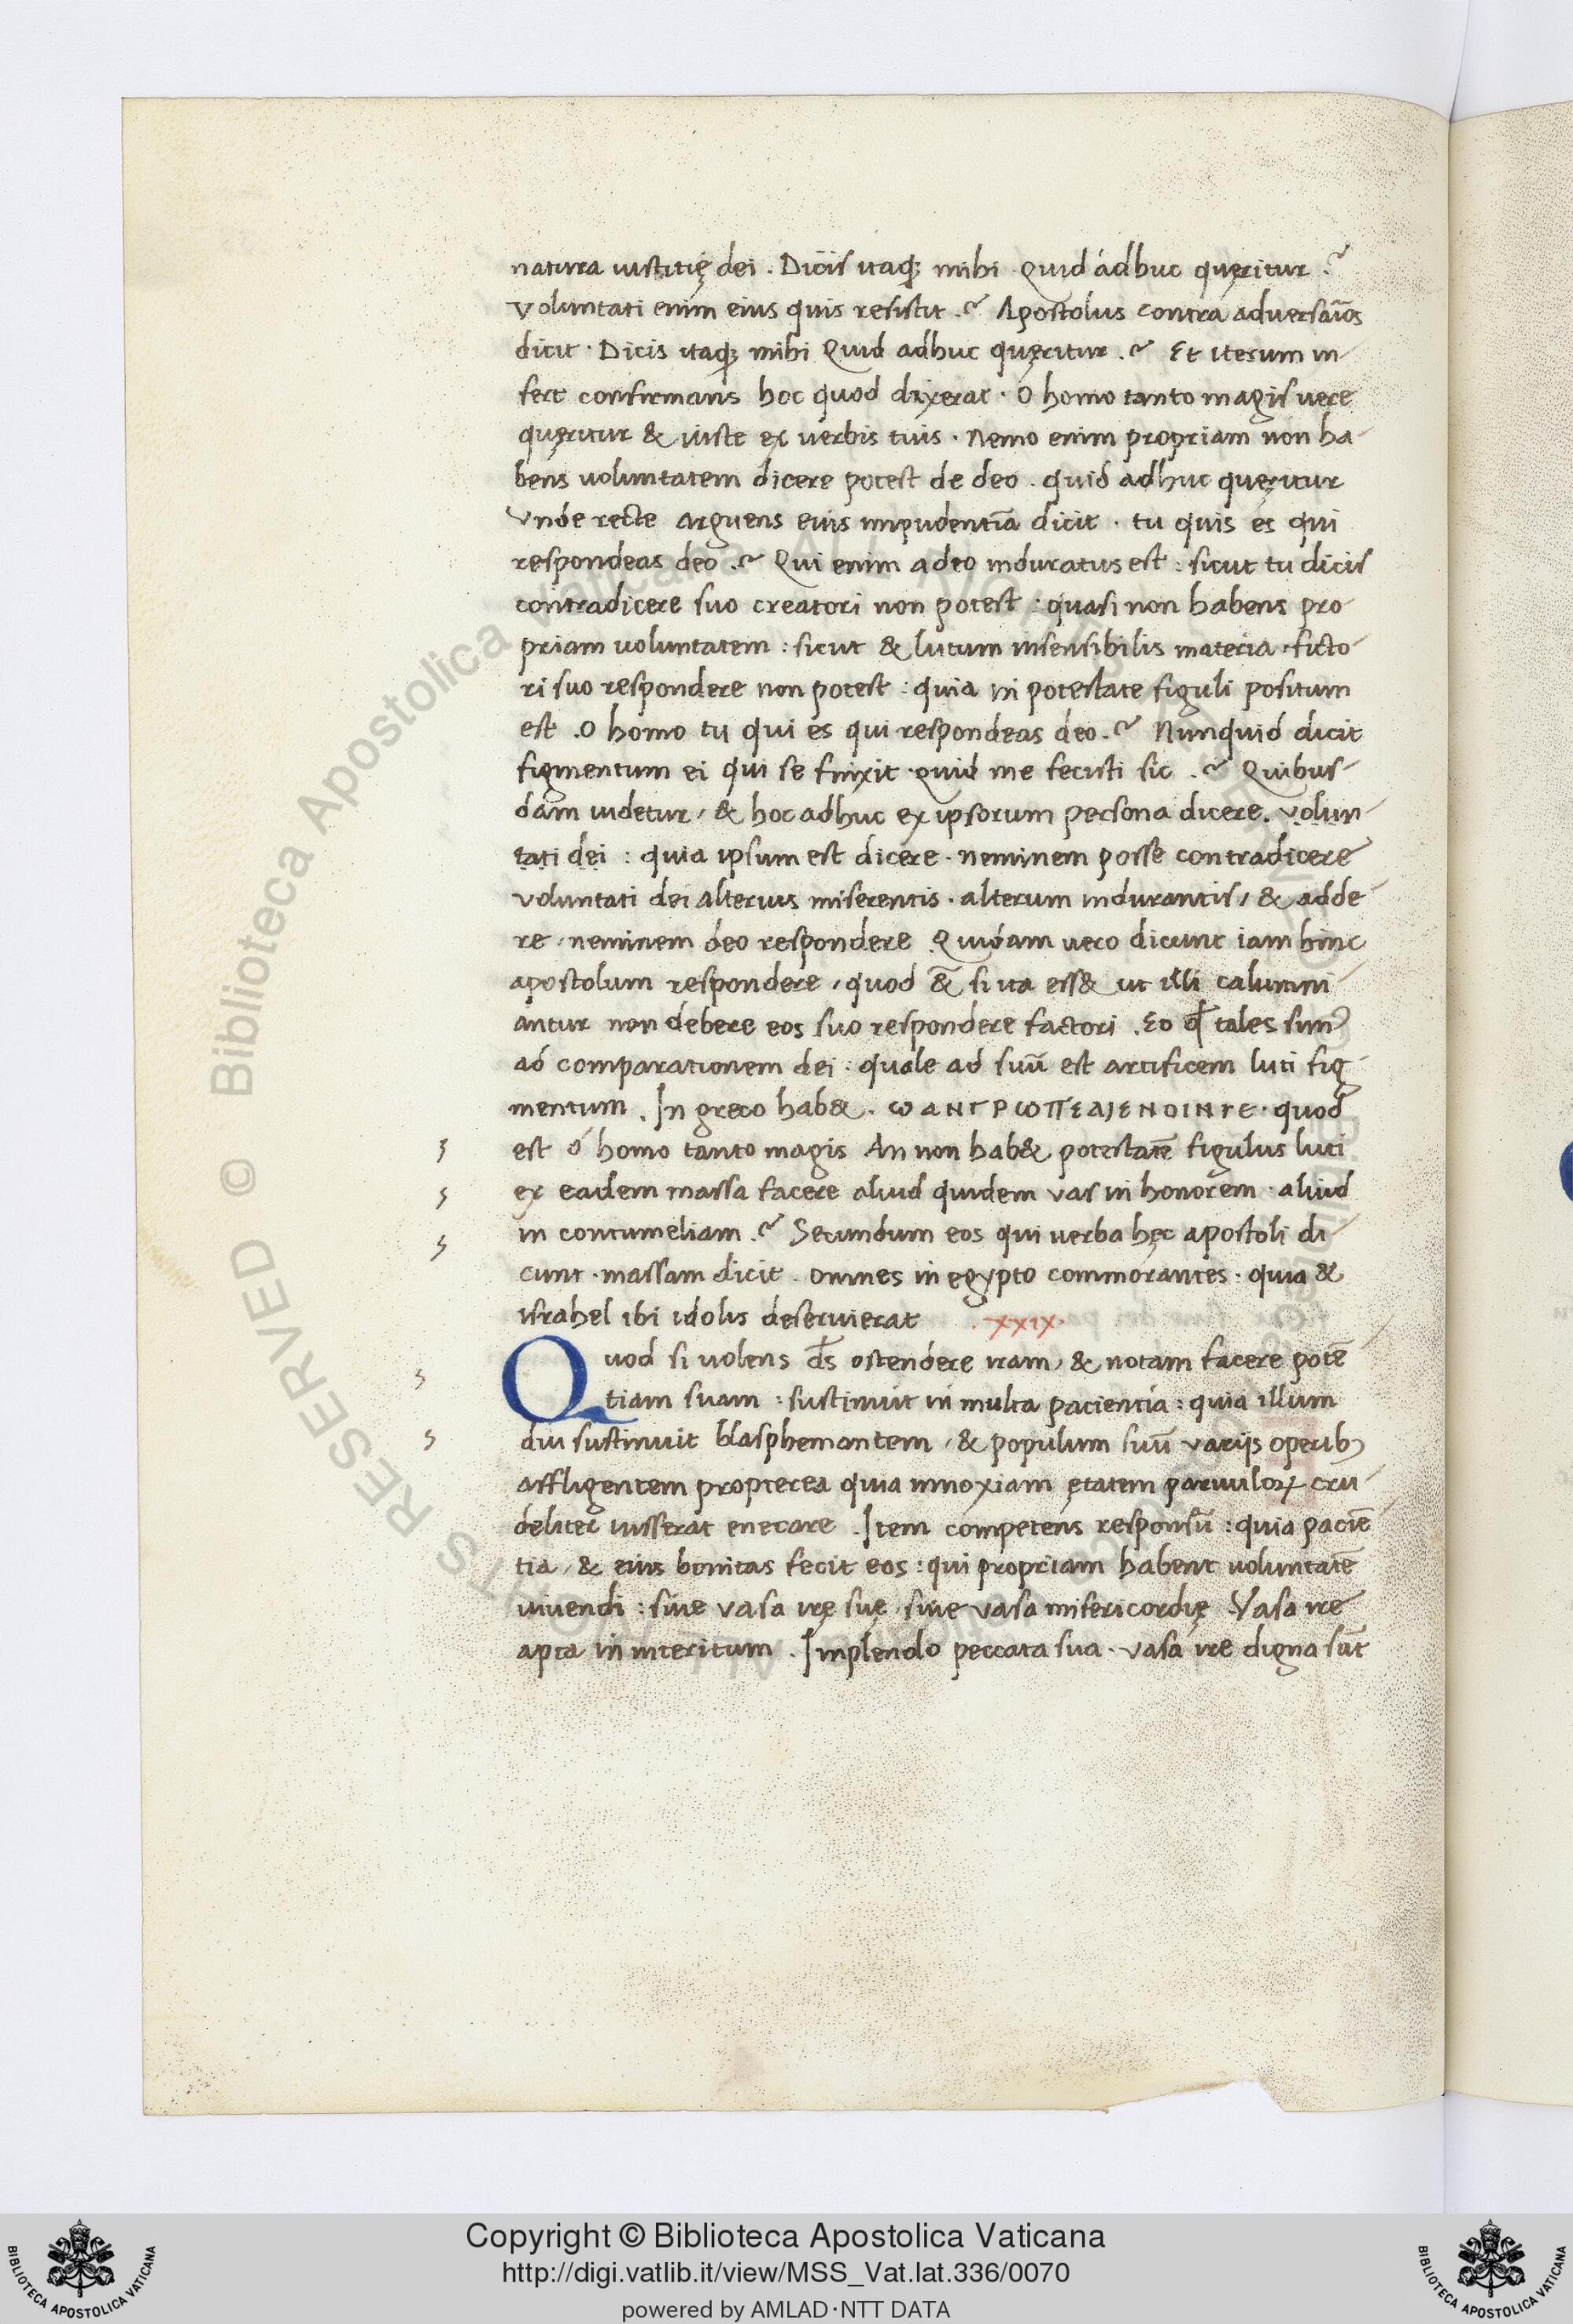 natura iustitię dei . Dicis itaq; mihi Quid adhuc quęritur ?
voluntati enim eius quis resistit ? Apostolus contra adversaĩos
dicit · Dicis itaq; mihi Quid adhuc quęritur ? Et iterum in-
fert confirmans hoc quod dixerat · O homo tanto magis vere
quęritur & iuste ex verbis tuis · Nemo enim propriam non ha-
bens voluntatem dicere potest de deo . quid adhuc quęritur
vnde recte arguens eius impudentiã dicit · tu quis es qui
respondeas deo ? Qui enim a deo induratus est : sicut tu dicis
contradicere suo creatori non potest : quasi non habens pro-
priam voluntatem : sicut & lutum insensibilis materia · ficto-
ri suo respondere non potest : quia in potestate figuli positum
est . O homo tu qui es qui respondeas deo ? Nunquid dicit
figmentum ei qui se finxit · quid me fecisti sic ? Quibus-
dam uidetur / & hoc adhuc ex ipsorum persona dicere . volun-
tati dei : quia ipsum est dicere · neminem posse contradicere
voluntati dei alterius miserentis · alterum indurantis / & adde-
re / neminem deo respondere Quidam uero dicunt iam hinc
apostolum respondere / quod &̃ si ita ess& ut illi calumni-
antur non debere eos suo respondere factori . Eo ꝙ tales sunt
ad comparationem dei : quale ad suũ est artificem luti fig-
mentum . In greco hab& . ω ΑΝΓΡωΠΕΑJΕΝΟΙΝΓΕ · quod
est ó homo tanto magis An non hab& potestatẽ figulus luti
ex eadem massa facere aliud quidem vas in honorem · aliud
in contumeliam ? Secundum eos qui verba hęc apostoli di-
cunt · massam dicit . omnes in egypto commorantes · quia &
israhel ibi idolis deseruierat . xxix.
Quod si uolens d̃s ostendere iram / & notam facere potẽ
tiam suam : sustinuit in multa paciencia : quia illum
diu sustinuit blasphemantem / & populum suũ varijs operibꝫ
affligentem propterea quia innoxiam ętatem paruuloꝝ cru-
deliter iusserat enecare . Item competens responsũ : quia paciẽ
tia / & eius bonitas fecit eos : qui propriam habent voluntatẽ
uiuendi : siue vasa irę suę siue vasa misericordię Vasa ire
apta in interitum . Implendo peccata sua · vasa ire digna sũt
Copyright © Biblioteca Apostolica Vaticana
http://digi.vatlib.it/view/MSS_Vat.lat.336/0070
powered by AMLAD·NTT DATA